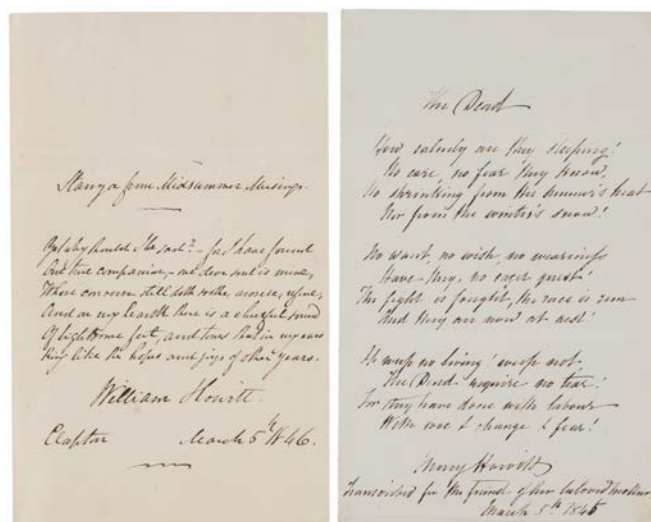 Stanza from Midsummer Musings.
But why should I be sad? – for I have found
One true companion, – one dear soul is mine,
Whose converse still doth soothe, arouse, refine,
And on my hearth there is a cheerful sound
Of lightsome feet, and tones that in my ears
Ring like the hopes and joys of other years.
William Howitt.
Clapton March 5th 1846.
The Dead
How calmly are they sleeping!
No care, no fear they know,
No shrinking from the summer's heat
Nor from the winter's snow!
No want, no wish, no weariness
Have they, no eager quest!
The fight is fought, the race is run
And they are now at rest!
Ye weep no living! weep not
The Dead require no tear!
For they have done with labour
With woe & change & fear!
Mary Howitt
Transcribed for the friend of her beloved mother
March 5th 1846